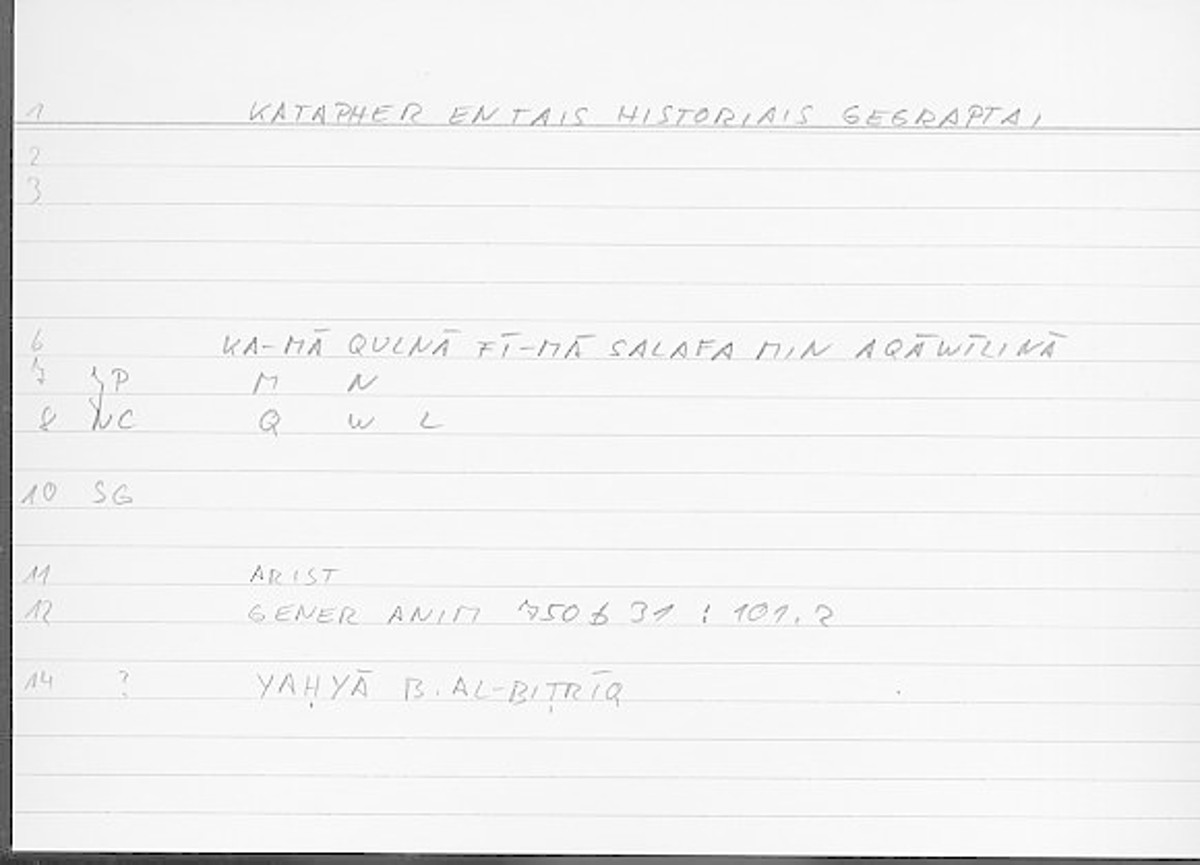 1 KATAPHER EN TAIS HISTORIAIS GEGRAPTAI
2
3
6 KA-MĀ QULNĀ FĪ-MĀ SALAFA MIN AQĀWĪLINĀ
7 P M N
8 NC Q W L
10 SG
11 ARIST
12 GENER ANIM 750 b 31 : 101.2
14 ? YAḤYĀ B. AL-BIṬRĪQ